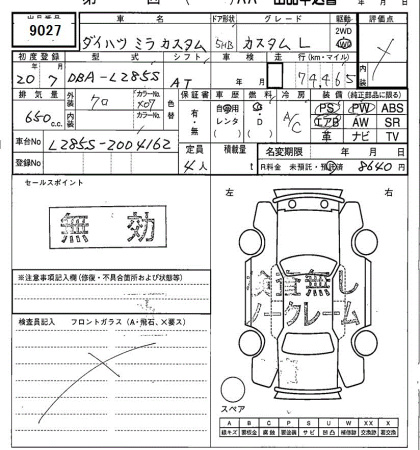 出品申込書
出品番号 車名 ドア形状 グレード 駆動 評価点
9027 ダイハツ ミラ カスタム 5HB カスタム L 2WD 4WD
初度登録 型式 シフト 車検 走行(km・マイル)
20年7月 DBA-L285S AT 年 月 74,465
排気量 外装 クロ カラーNo. X07 色替 保証書 車歴 燃料 冷房 装備(純正部品に限る)
650c.c. 内装 カラーNo. 有・無 自家用 レンタ G・D A/C PS PW ABS
エアB AW SR
革 ナビ TV
車台No L285S-2004162 定員 積載量 名変期限 年 月 日
登録No 4人 t R料金 未預託・預託済 8640円
セールスポイント
左 右
無効
※注意事項記入欄(修復・不具合箇所および状態等)
検査員記入 フロントガラス(A・飛石、×要ス)
保証無し
ノークレーム
スペア
A B C P S U W XX X
線キズ 要板金 腐蝕 要塗装 サビ 凹凸 補修跡 交換跡 要交換